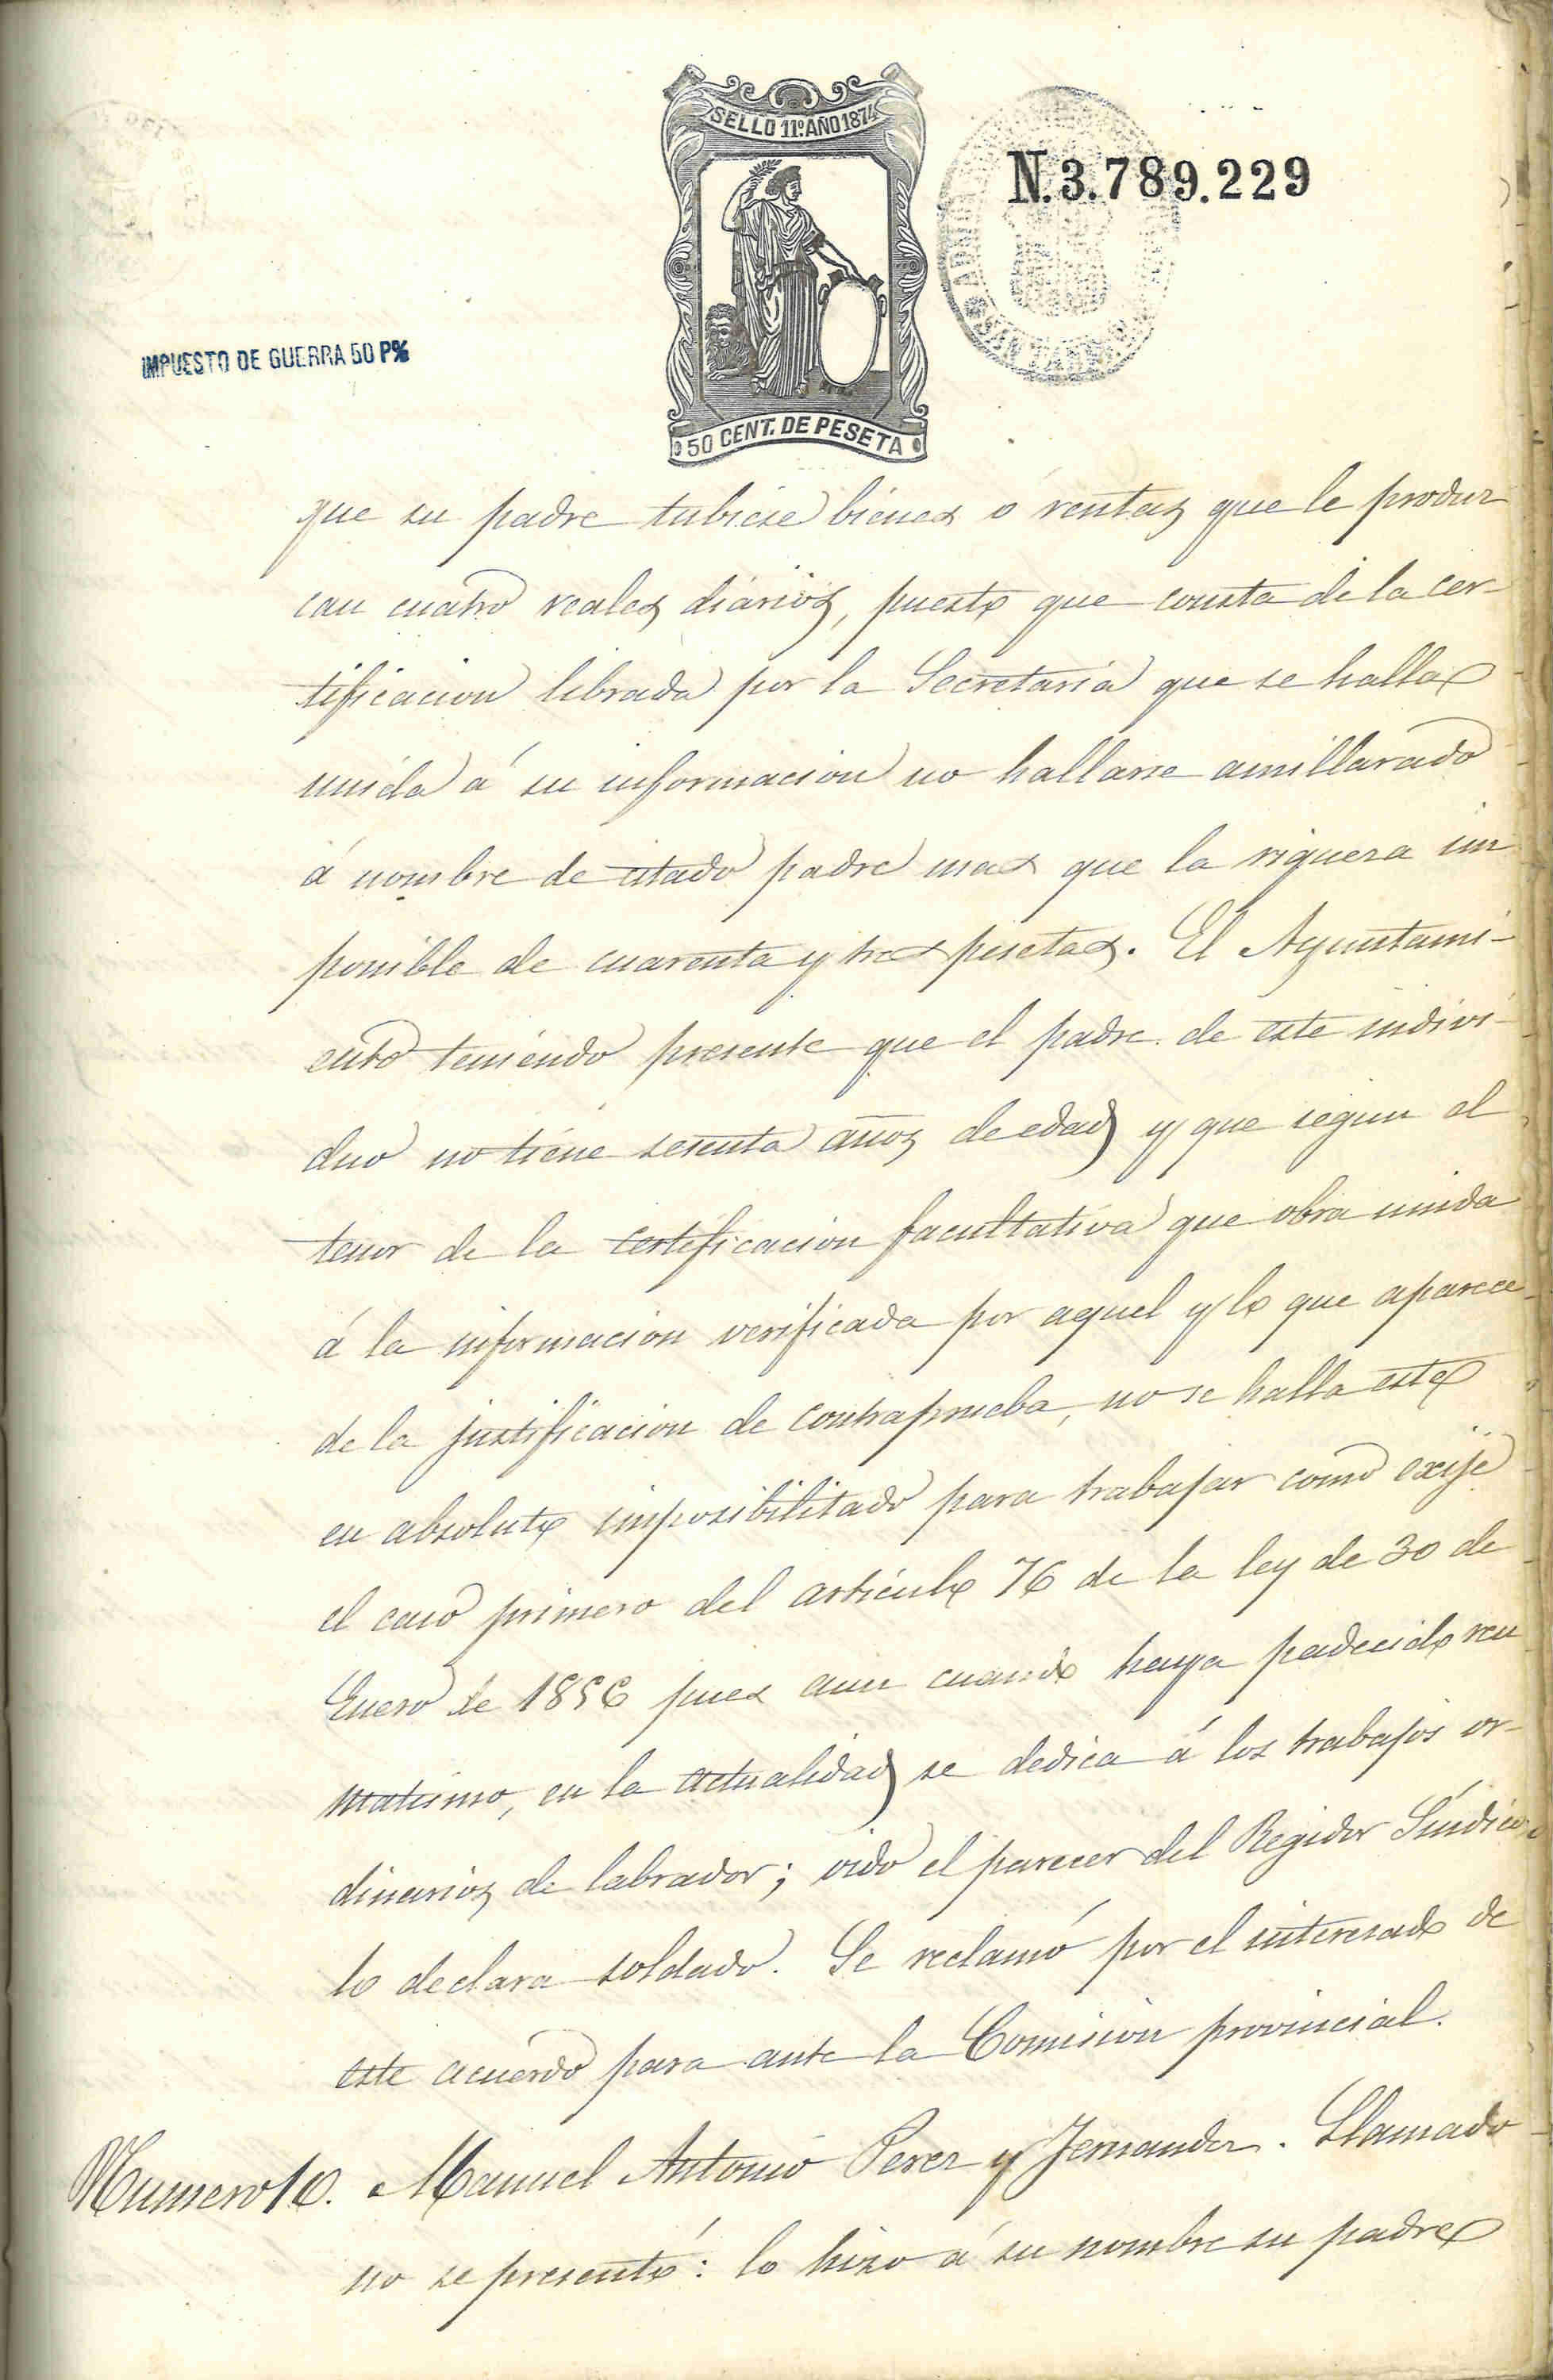 SELLO 11º AÑO 1874
N.3.789.229
IMPUESTO DE GUERRA 50 P%
50 CENT. DE PESETA
que su padre tubiese bienes ó rentas que le produz
can cuatro reales diarios, puesto que consta de la cer-
tificacion librada por la Secretaria que se halla
unida á su informacion no hallarse amillarado
á nombre de citado padre mas que la riqueza im
ponible de cuarenta y tres pesetas. El Ayuntami-
ento teniendo presente que el padre de este indivi-
duo no tiene sesenta años de edad y que segun el
tenor de la certificacion facultativa que obra unida
á la informacion verificada por aquel y lo que aparece
de la justificacion de contraprueba, no se halla este
en absoluto imposibilitado para trabajar como exije
el caso primero del articulo 76 de la ley de 30 de
Enero de 1856 pues aun cuando haya padecido reu
matismo, en la actualidad se dedica á los trabajos or-
dinarios de labrador; oido el parecer del Regidor Síndico
lo declara soldado. Se reclamó por el interesado de
este acuerdo para ante la Comision provincial.
Numero 10. Manuel Antonio Perez y Fernandez. Llamado
no se presentó: lo hizo á su nombre su padre